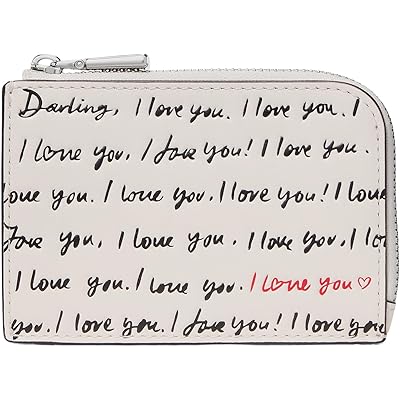 Darling, I love you. I love you. I
I love you, I love you! I love you.
love you. I love you, I love you! I love
love you, I love you. I love you, I lo
I love you. I love you. I love you♡
you. I love you. I love you! I love you